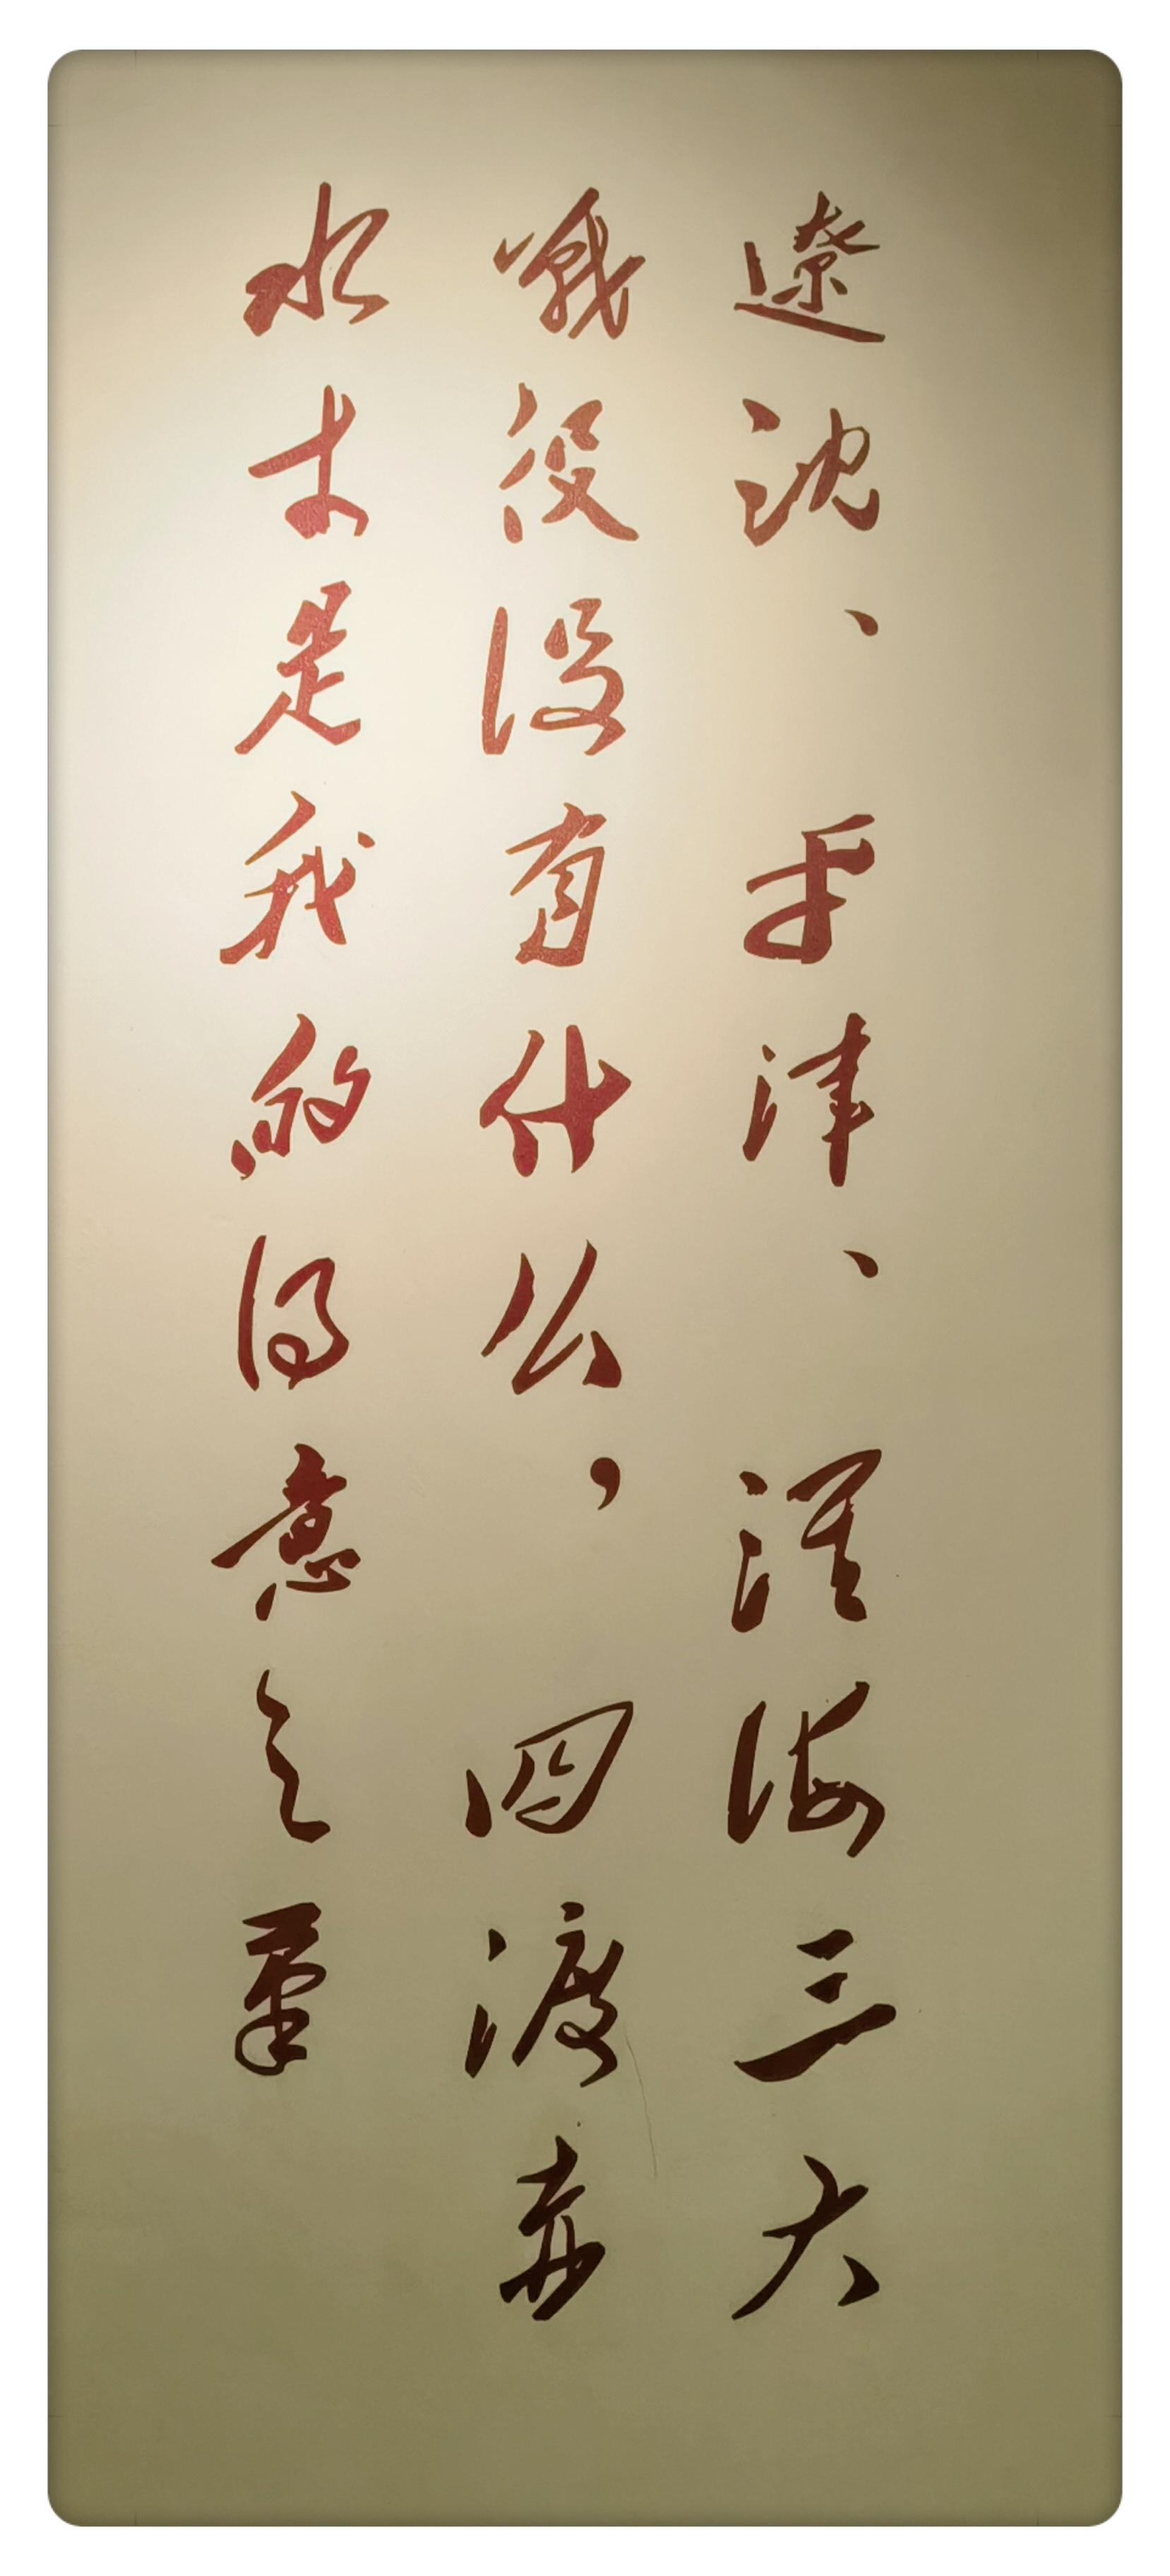 遼沈、平津、淮海三大
戰役没有什么，四渡赤
水才是我的得意之筆